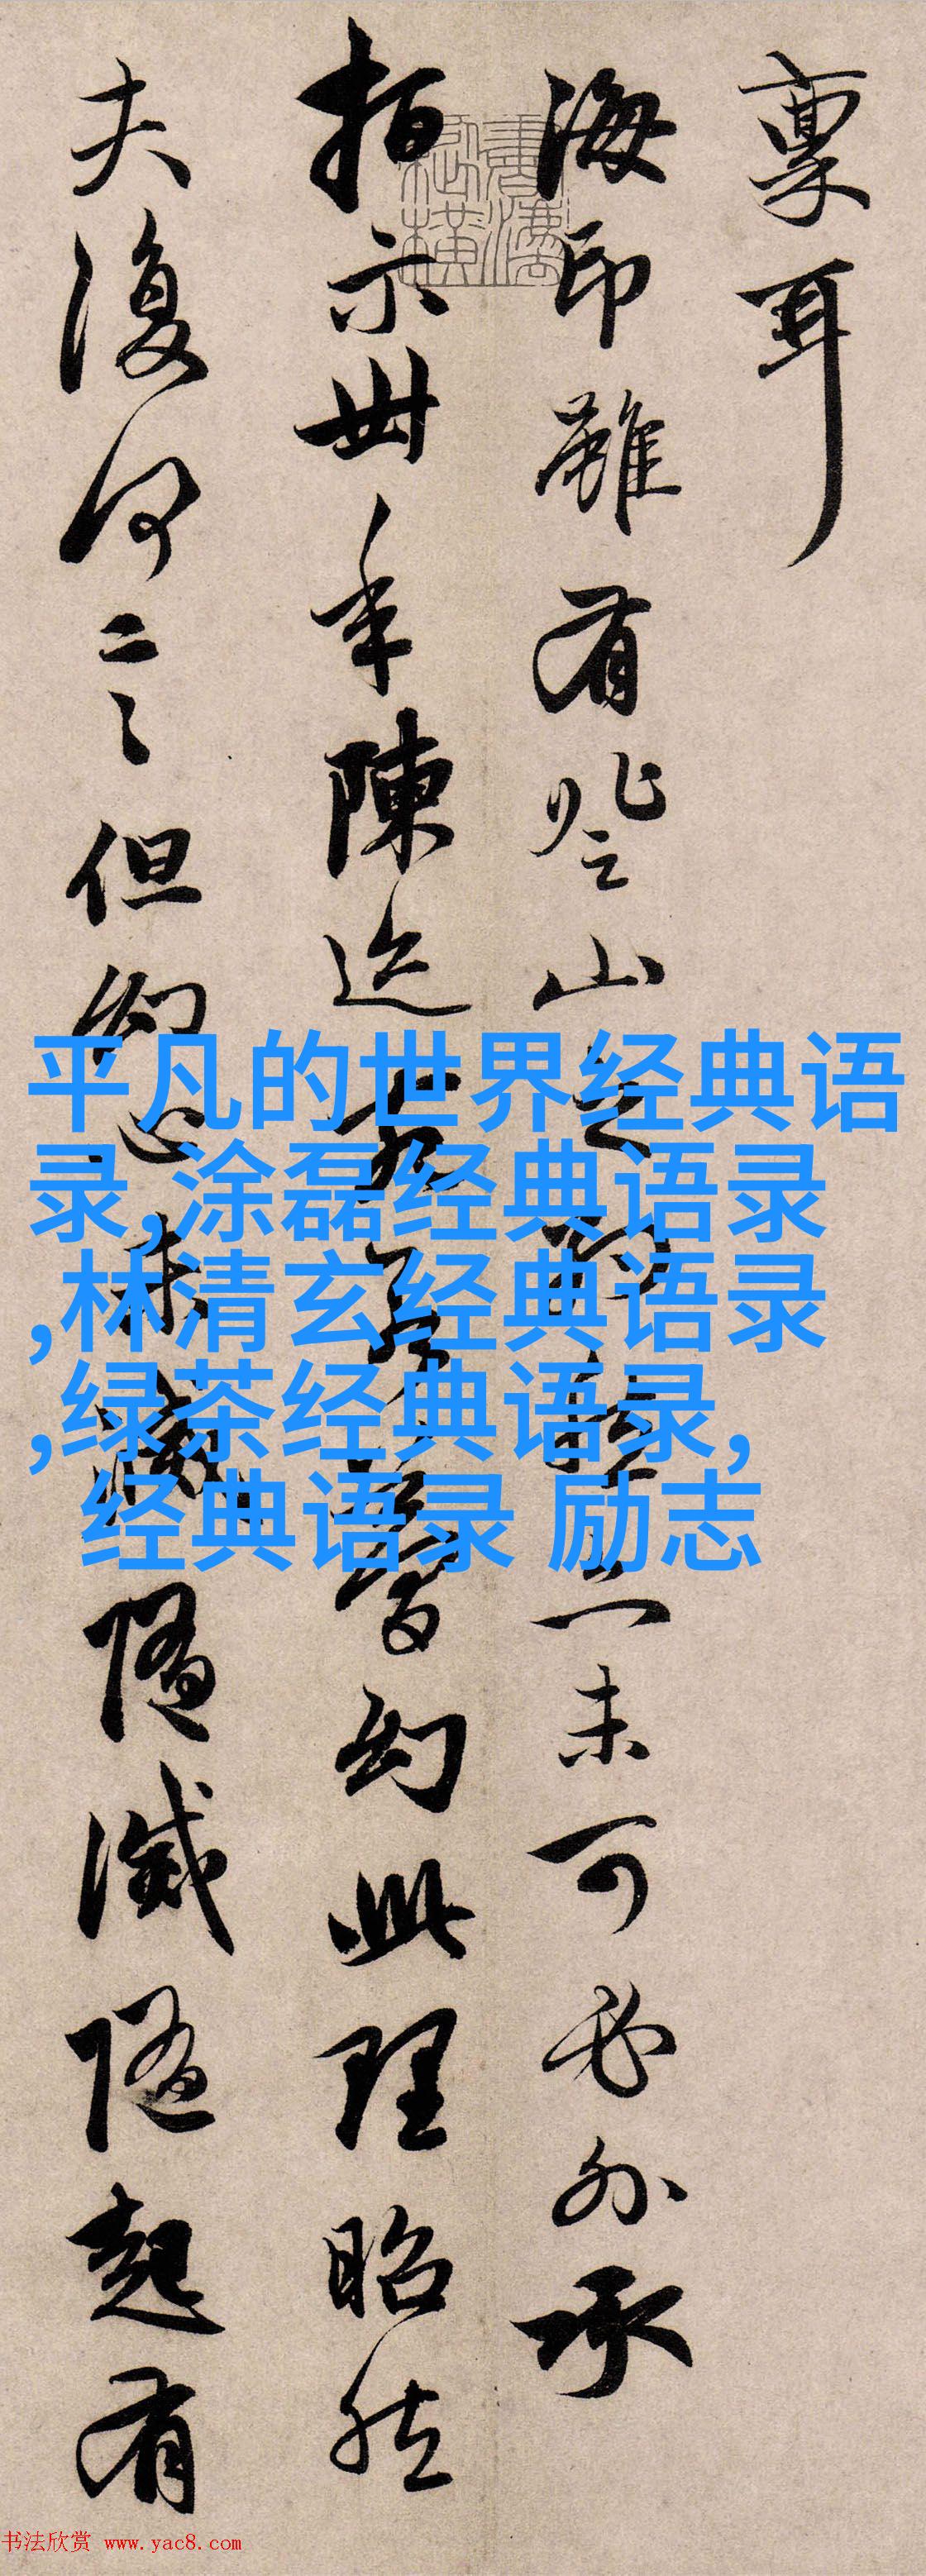 禀耳
海印雖有登山之
未可必外承
指示卅年陳迹
幻此理昭然
夫復何言言但幻心未滅隨滅隨起有
平凡的世界经典语
录,涂磊经典语录
,林清玄经典语录
,绿茶经典语录,
经典语录 励志
书法欣赏 www.yac8.com